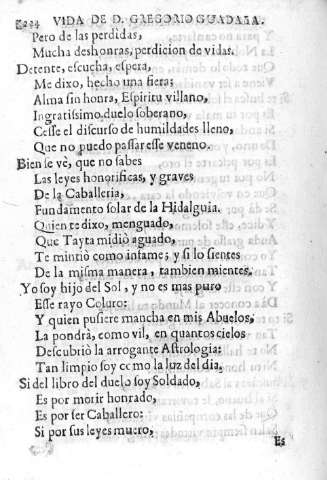 234 VIDA DE D. GREGORIO GUADAÑA.
Pero de las perdidas,
Mucha deshonras, perdicion de vidas.
Detente, escucha, espera,
Me dixo, hecho una fiera;
Alma sin honra, Espiritu villano,
Ingratissimo, duelo soberano,
Cesse el discurso de humildades lleno,
Que no puedo passar esse veneno.
Bien se vè, que no sabes
Las leyes honorificas, y graves
De la Caballeria,
Fundamento solar de la Hidalguia.
Quien te dixo, menguado,
Que Tayta midiò aguado,
Te mintiò como infame; y si lo sientes
De la misma manera, tambien mientes.
Yo soy hijo del Sol, y no es mas puro
Esse rayo Coluro:
Y quien pusiere mancha en mis Abuelos,
La pondrà, como vil, en quantos cielos
Descubriò la arrogante Astrologia:
Tan limpio soy como la luz del dia,
Si del libro del duelo soy Soldado,
Es por morir honrado,
Es por ser Caballero:
Si por sus leyes muero,
Es